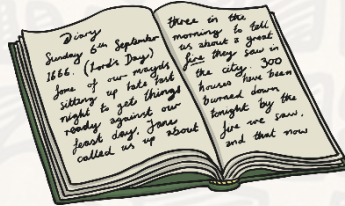 Diary
Sunday 6th September
1666. (Lord's Day)
Some of our maids
sitting up late last
night to get things
ready against our
feast day, Jane
called us up about
three in the
morning to tell
us about a great
fire they saw in
the city. 300
houses have been
burned down
tonight by the
fire we saw,
and that now